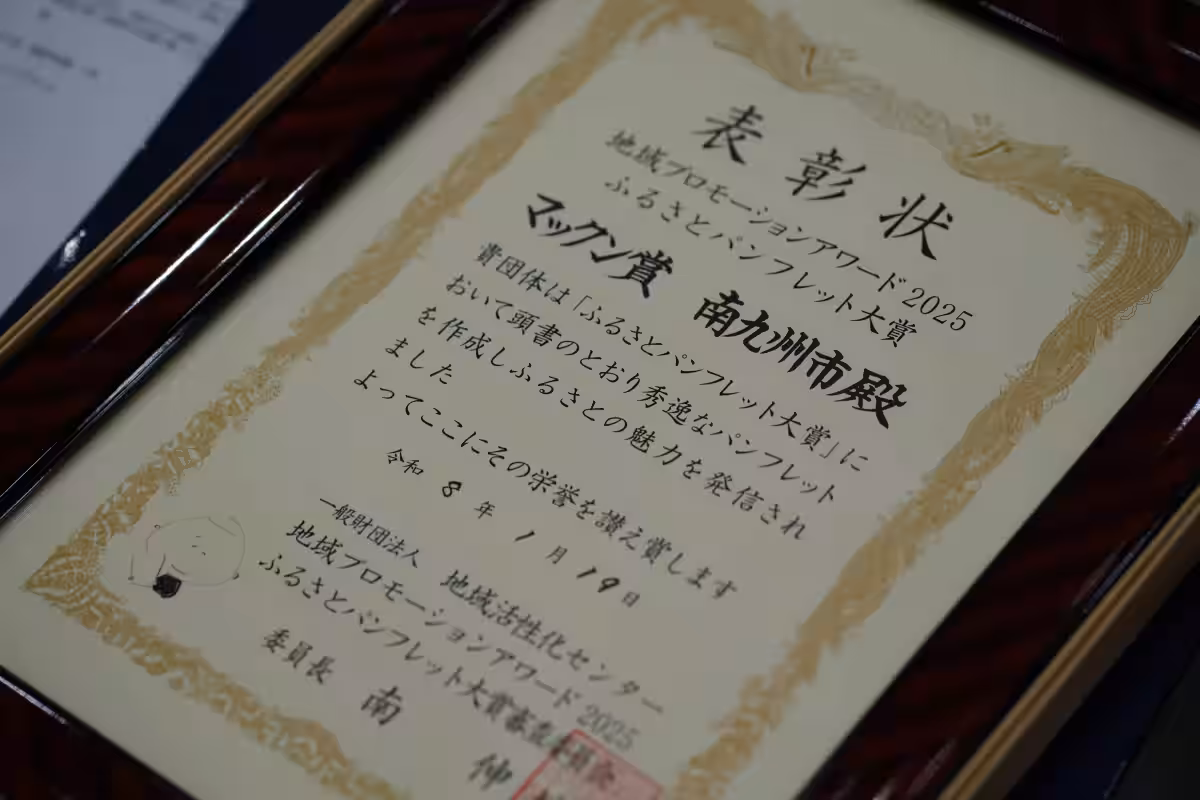 表彰状
地域プロモーションアワード2025
ふるさとパンフレット大賞
マックン賞
南九州市殿
貴団体は「ふるさとパンフレット大賞」に
おいて頭書のとおり秀逸なパンフレット
を作成しふるさとの魅力を発信され
ました
よってここにその栄誉を讃え賞します
令和8年1月19日
一般財団法人 地域活性化センター
地域プロモーションアワード2025
ふるさとパンフレット大賞審査委員会
委員長 南 伸